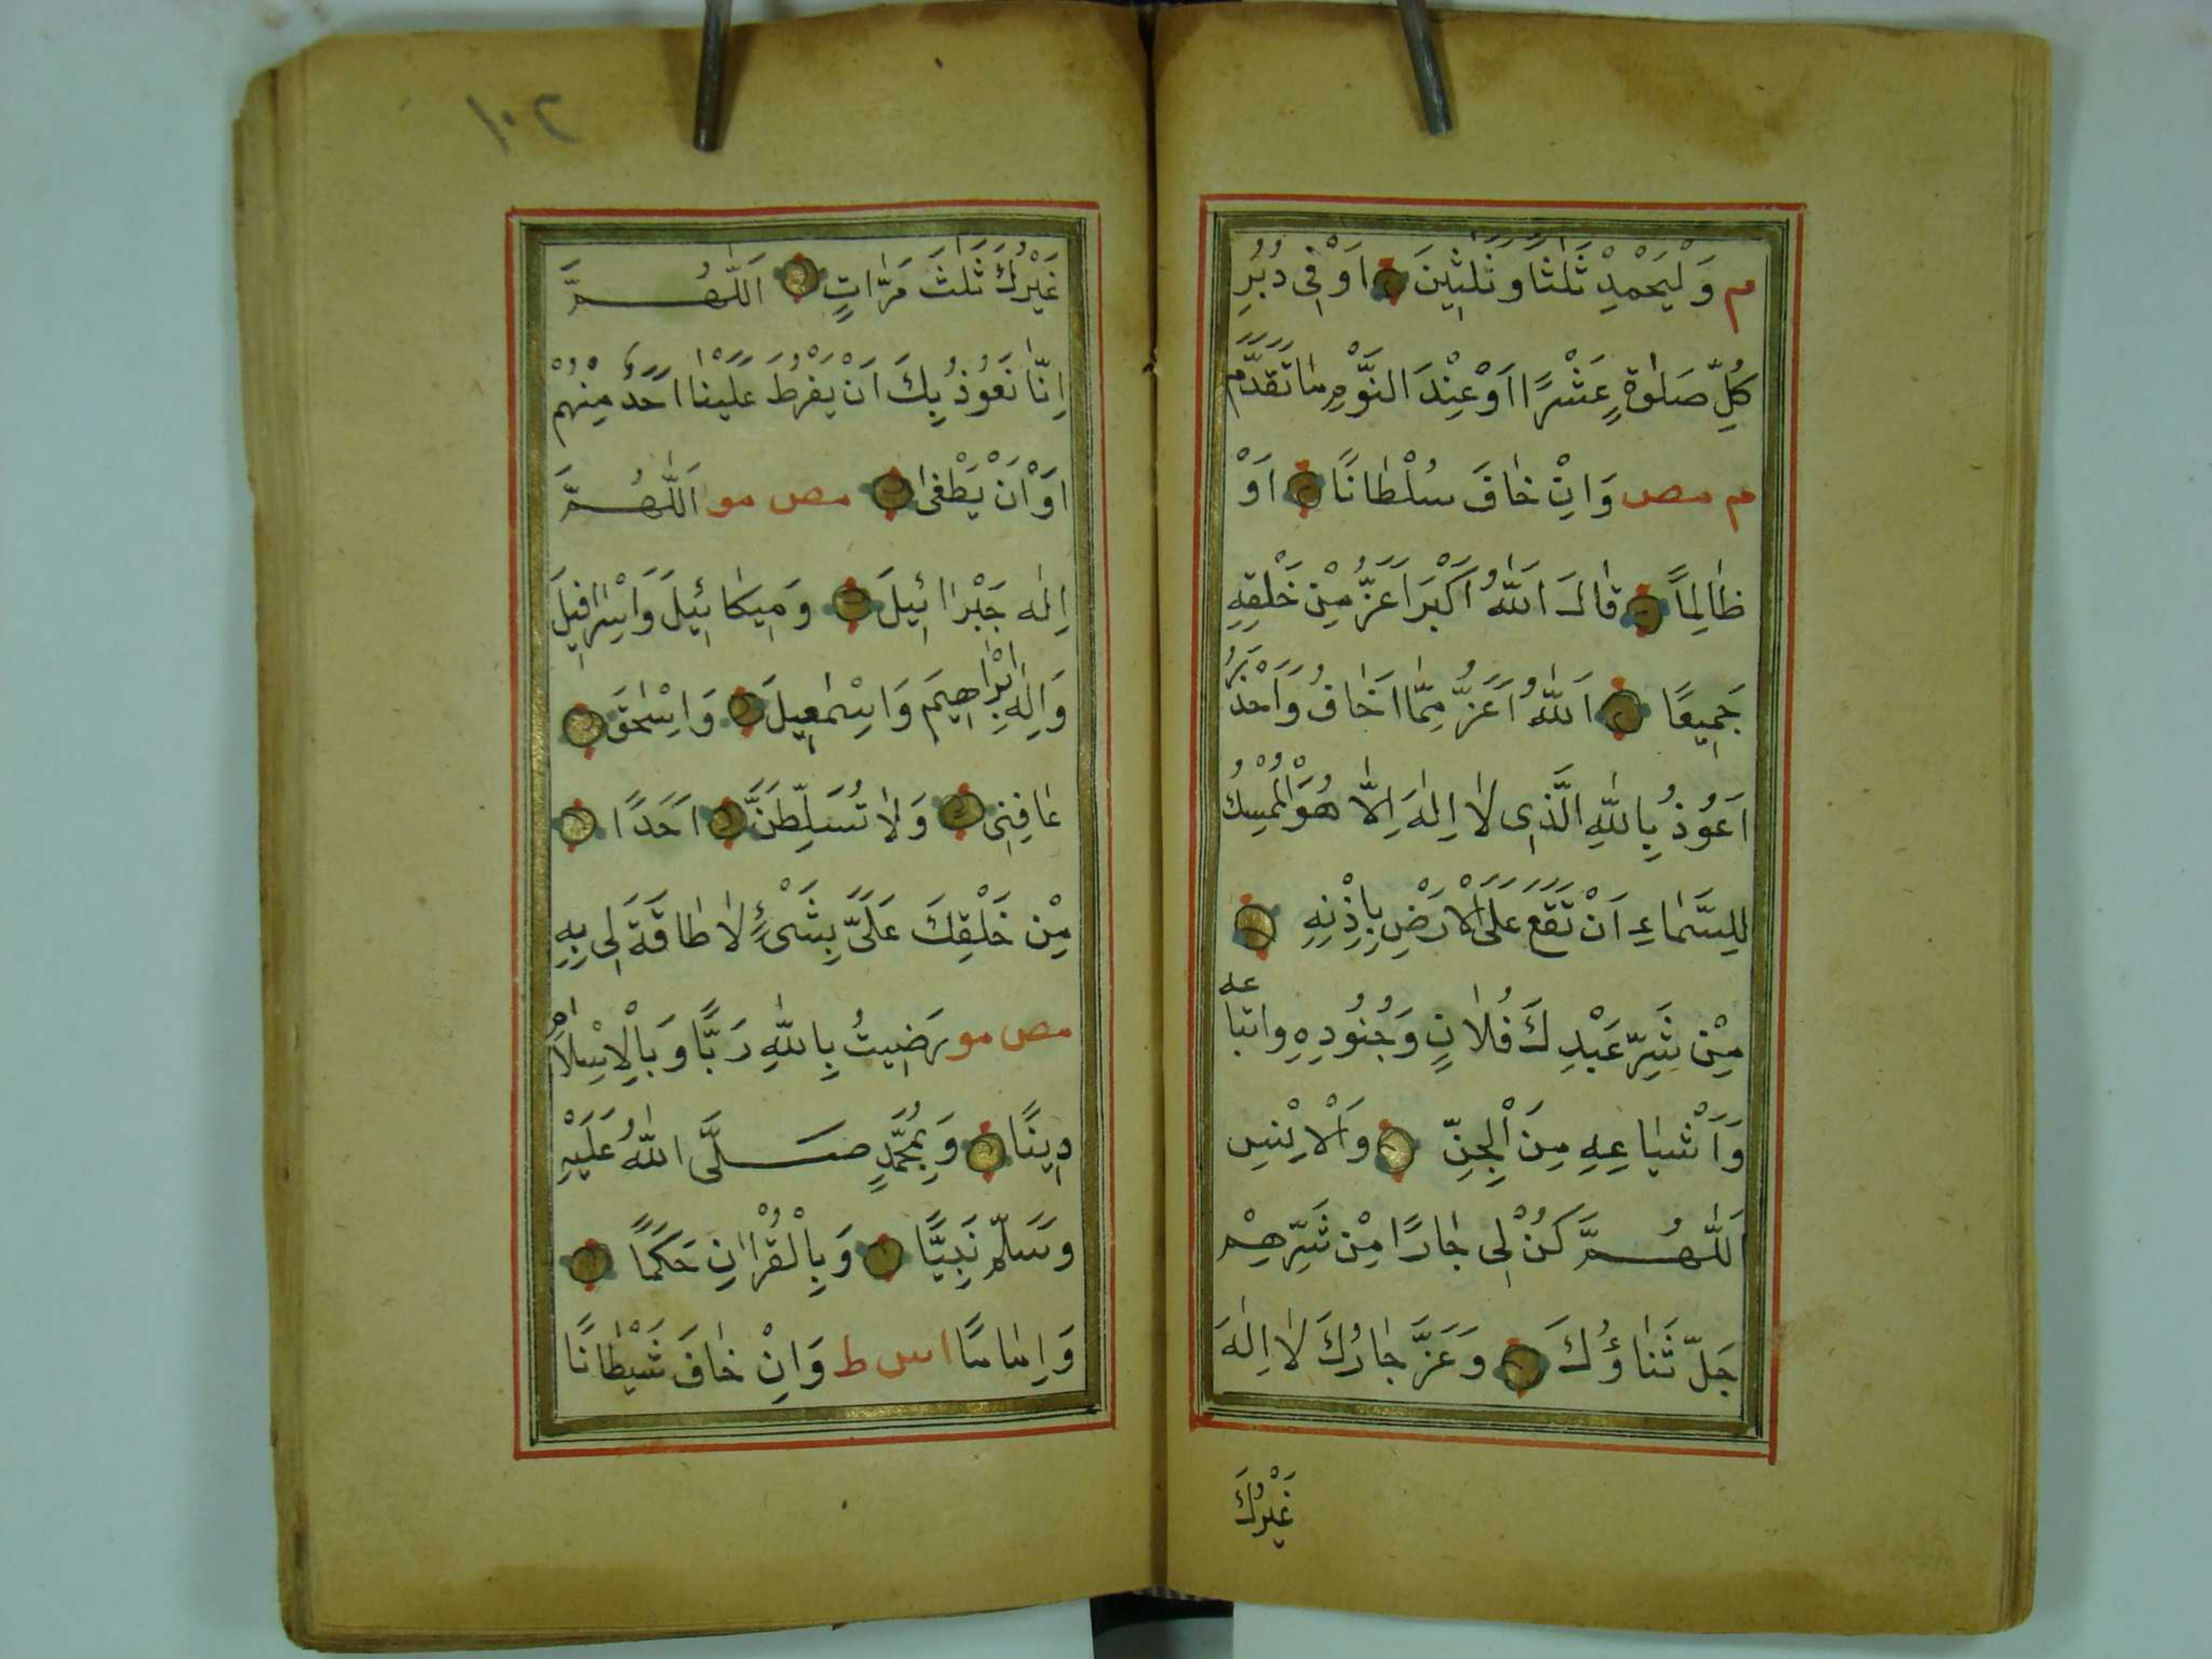 م وَلْيَحْمِدْ ثَلٰثًا وَثَلٰثِينَ اَوْ فِى دُبُرِ
كُلِّ صَلٰوةٍ عَشْرًا اَوْ عِنْدَ النَّوْمِ مَا تَقَدَّمَ
م مص وَاِنْ خَافَ سُلْطَانًا اَوْ
ظَالِمًا قَالَ اَللّٰهُ اَكْبَرَ اَعَزُّ مِنْ خَلْقِهِ
جَمِيعًا اَللّٰهُ اَعَزُّ مِمَّا اَخَافُ وَاَحْذَرُ
اَعُوذُ بِاللّٰهِ الَّذِى لَا اِلٰهَ اِلَّا هُوَ الْمُمْسِكُ
لِلسَّمَاءِ اَنْ تَقَعَ عَلَى الْاَرْضِ بِاِذْنِهِ
مِنْ شَرِّ عَبْدِكَ فُلَانٍ وَجُنُودِهِ واتباعه
وَاَشْيَاعِهِ مِنَ الْجِنِّ وَالْاِنْسِ
اَللّٰهُمَّ كُنْ لِى جَارًا مِنْ شَرِّهِمْ
جَلَّ ثَنَاؤُكَ وَعَزَّ جَارُكَ لَا اِلٰهَ
غَيْرُكَ
١٠٢
غَيْرُكَ ثَلٰثَ مَرَّاتٍ اَللّٰهُمَّ
اِنَّا نَعُوذُ بِكَ اَنْ يَفْرُطَ عَلَيْنَا اَحَدٌ مِنْهُمْ
اَوْ اَنْ يَطْغٰى مص مو اَللّٰهُمَّ
اِلٰهَ جَبْرَائِيلَ وَمِيكَائِيلَ وَاِسْرَافِيلَ
وَاِلٰهَ اِبْرَاهِيمَ وَاِسْمٰعِيلَ وَاِسْحٰقَ
عَافِنِى وَلَا تُسَلِّطَنَّ اَحَدًا
مِنْ خَلْقِكَ عَلَىَّ بِشَىْءٍ لَا طَاقَةَ لِى بِهِ
مص مو رَضِيتُ بِاللّٰهِ رَبًّا وَبِالْاِسْلَامِ
دِينًا وَبِمُحَمَّدٍ صَلَّى اللّٰهُ عَلَيْهِ
وَسَلَّمَ نَبِيًّا وَبِالْقُرْاٰنِ حَكَمًا
وَاِمَامًا مص ط وَاِنْ خَافَ شَيْطَانًا